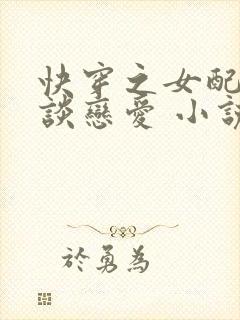 快穿之女配
談戀愛 小說
於勇為